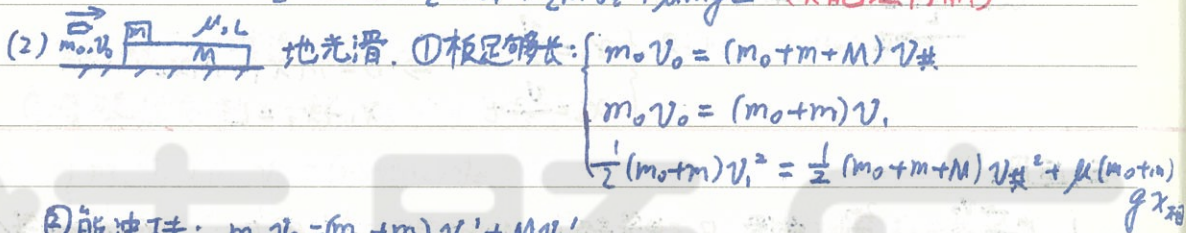 (2) m₀,v₀ m μ,L M 地光滑. ①板足够长: { m₀v₀ = (m₀+m+M)v共
m₀v₀ = (m₀+m)v₁
½(m₀+m)v₁² = ½(m₀+m+M)v共² + μ(m₀+m)gx相
②能冲